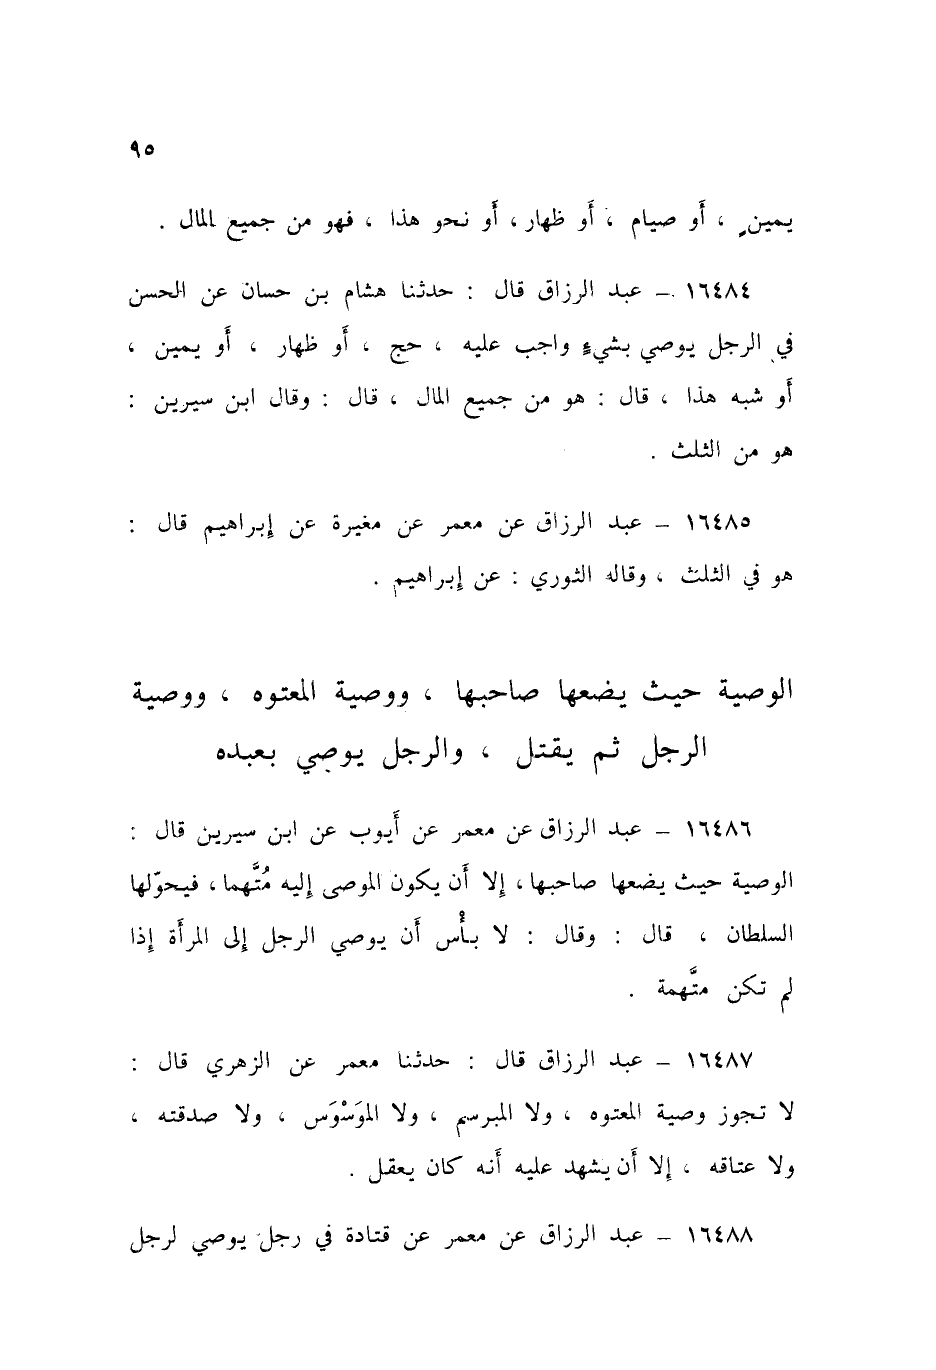 ٩٥
يمينٍ ، أو صيام ، أو ظهار ، أو نحو هذا ، فهو من جميع المال .
١٦٤٨٤ – عبد الرزاق قال : حدثنا هشام بن حسان عن الحسن
في الرجل يوصي بشيءٍ واجب عليه ، حج ، أو ظهار ، أو يمين ،
أو شبه هذا ، قال : هو من جميع المال ، قال : وقال ابن سيرين :
هو من الثلث .
١٦٤٨٥ – عبد الرزاق عن معمر عن مغيرة عن إبراهيم قال :
هو في الثلث ، وقاله الثوري : عن إبراهيم .
الوصية حيث يضعها صاحبها ، ووصية المعتوه ، ووصية
الرجل ثم يقتل ، والرجل يوصي بعبده
١٦٤٨٦ – عبد الرزاق عن معمر عن أيوب عن ابن سيرين قال :
الوصية حيث يضعها صاحبها ، إلا أن يكون الموصى إليه مُتَّهما ، فيحوّلها
السلطان ، قال : وقال : لا بأْس أن يوصي الرجل إلى المرأة إذا
لم تكن متَّهمة .
١٦٤٨٧ – عبد الرزاق قال : حدثنا معمر عن الزهري قال :
لا تجوز وصية المعتوه ، ولا المبرسم ، ولا الموَسْوَس ، ولا صدقته ،
ولا عتاقه ، إلا أن يشهد عليه أنه كان يعقل .
١٦٤٨٨ – عبد الرزاق عن معمر عن قتادة في رجل يوصي لرجل